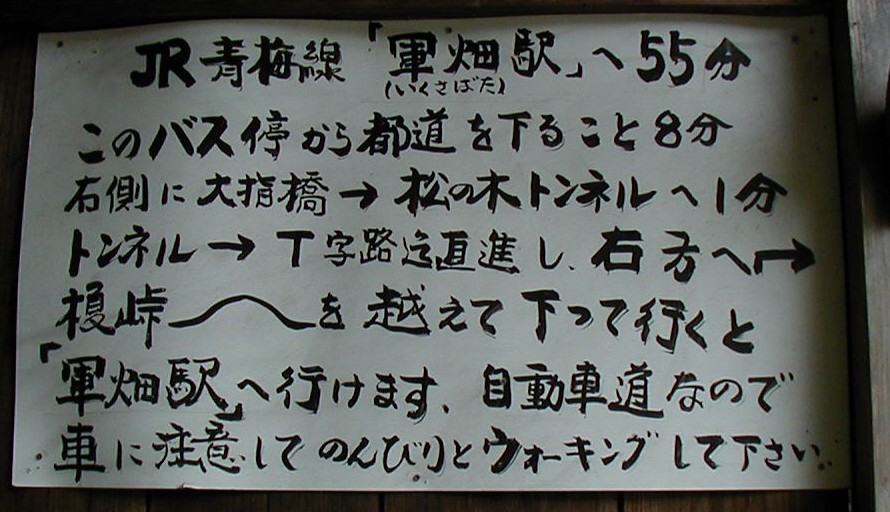 JR青梅線「軍畑駅」へ55分
(いくさばた)
このバス停から都道を下ること8分
右側に大指橋→松の木トンネルへ1分
トンネル→T字路迄直進し、右方へ→
榎峠を越えて下って行くと
「軍畑駅」へ行けます、自動車道なので
車に注意してのんびりとウォーキングして下さい.